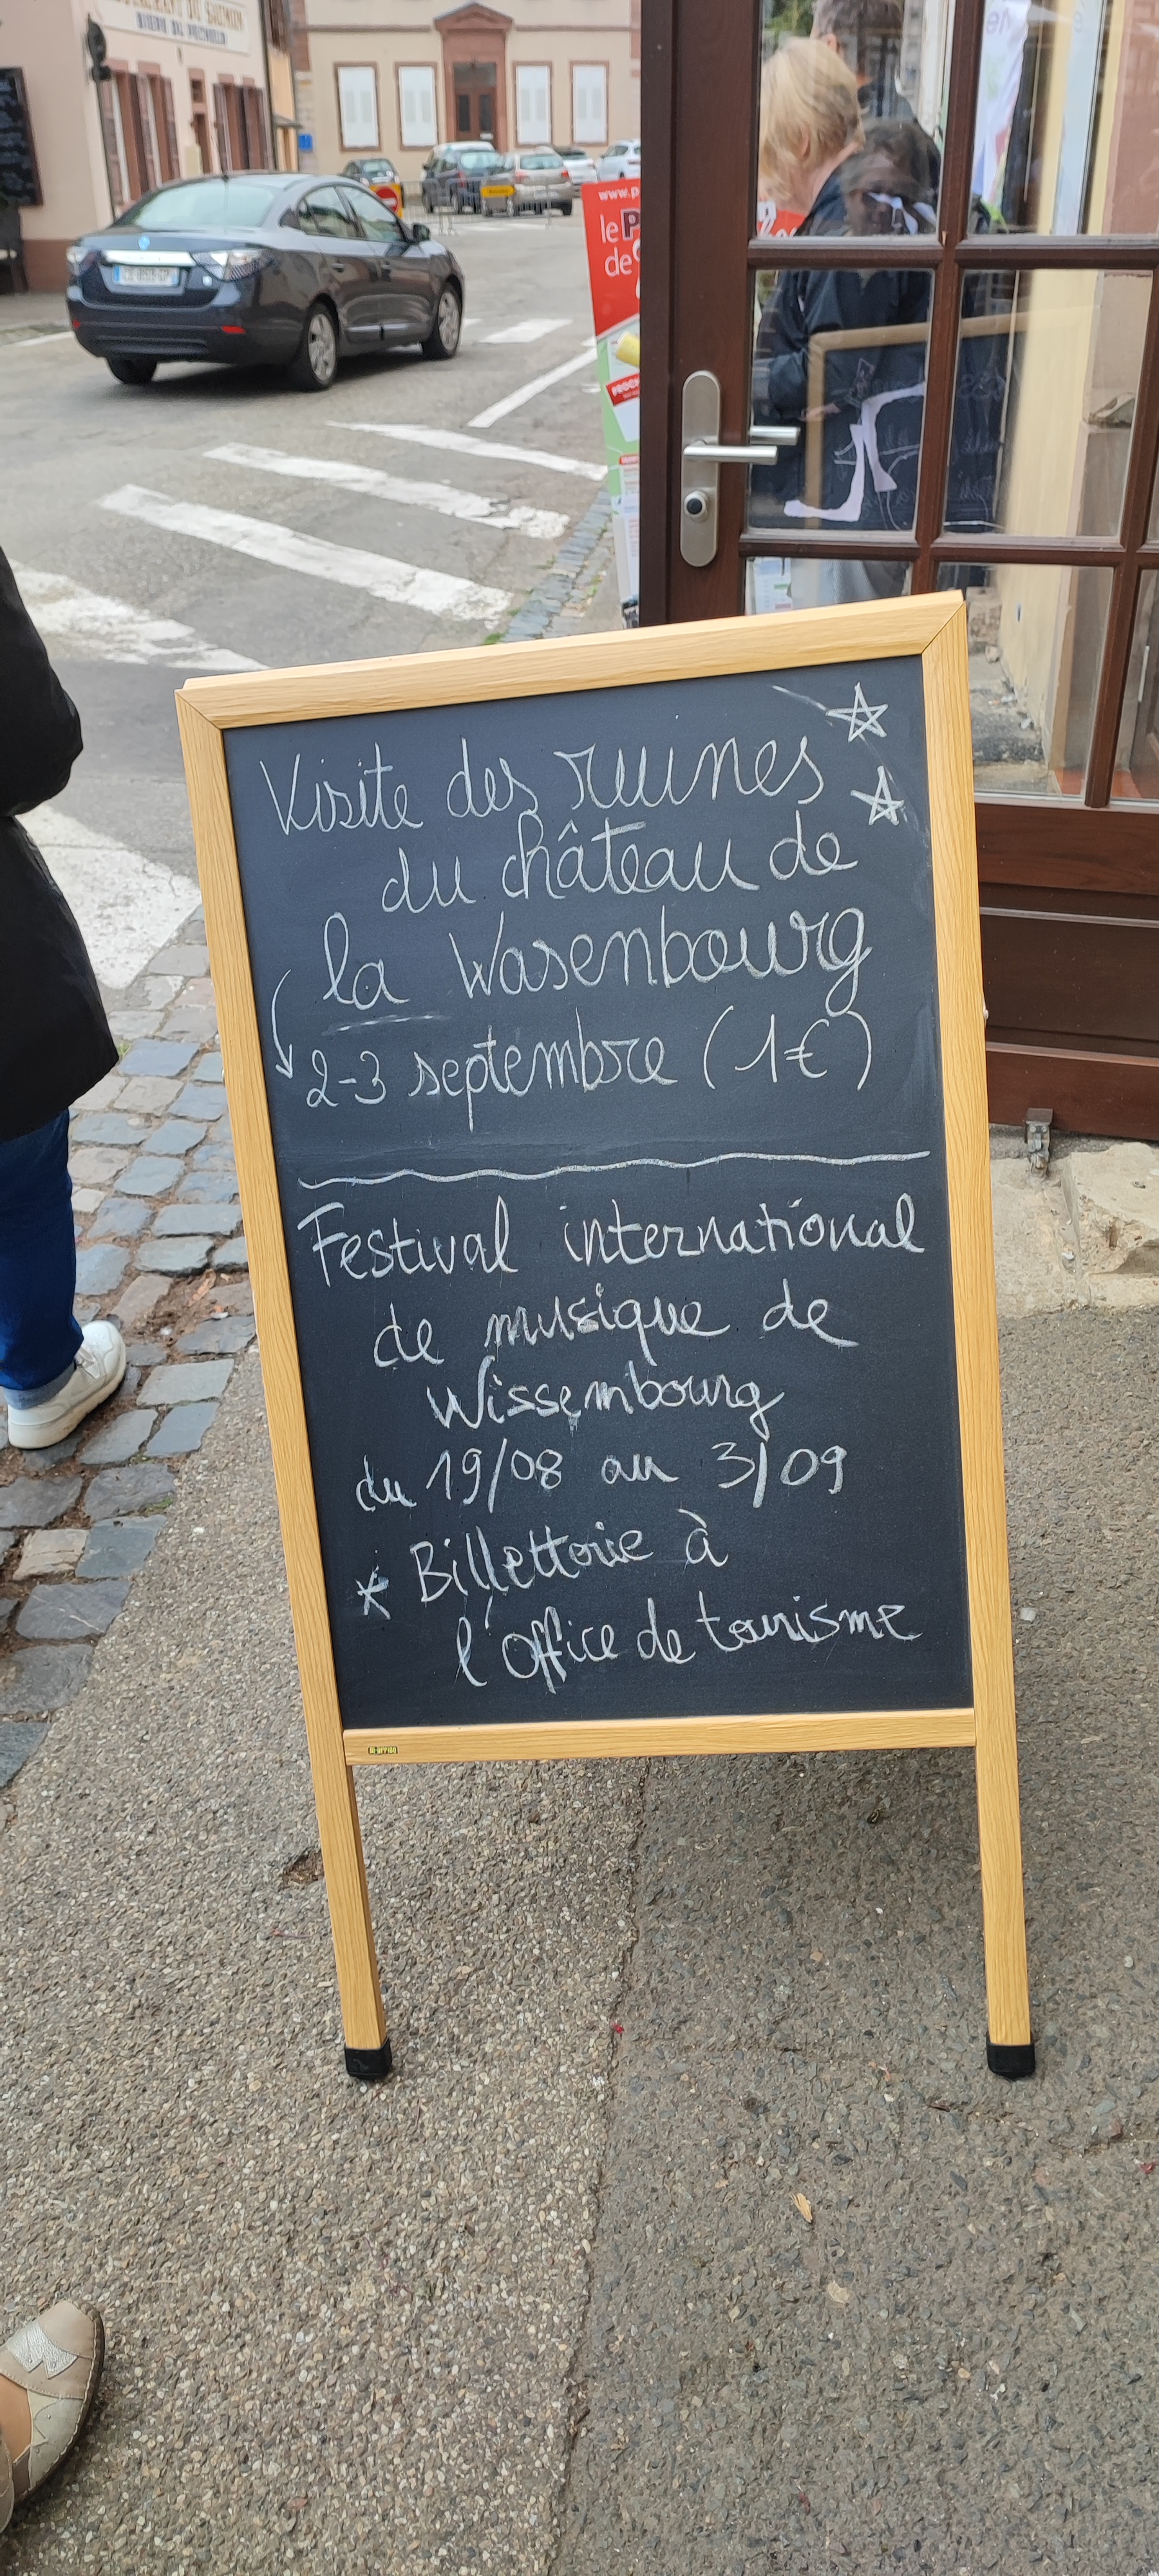 Visite des ruines
du château de
la Wasenbourg
2-3 septembre (1€)
Festival international
de musique de
Wissembourg
du 19/08 au 3/09
* Billetterie à
l'office de tourisme
www.p
le P
de